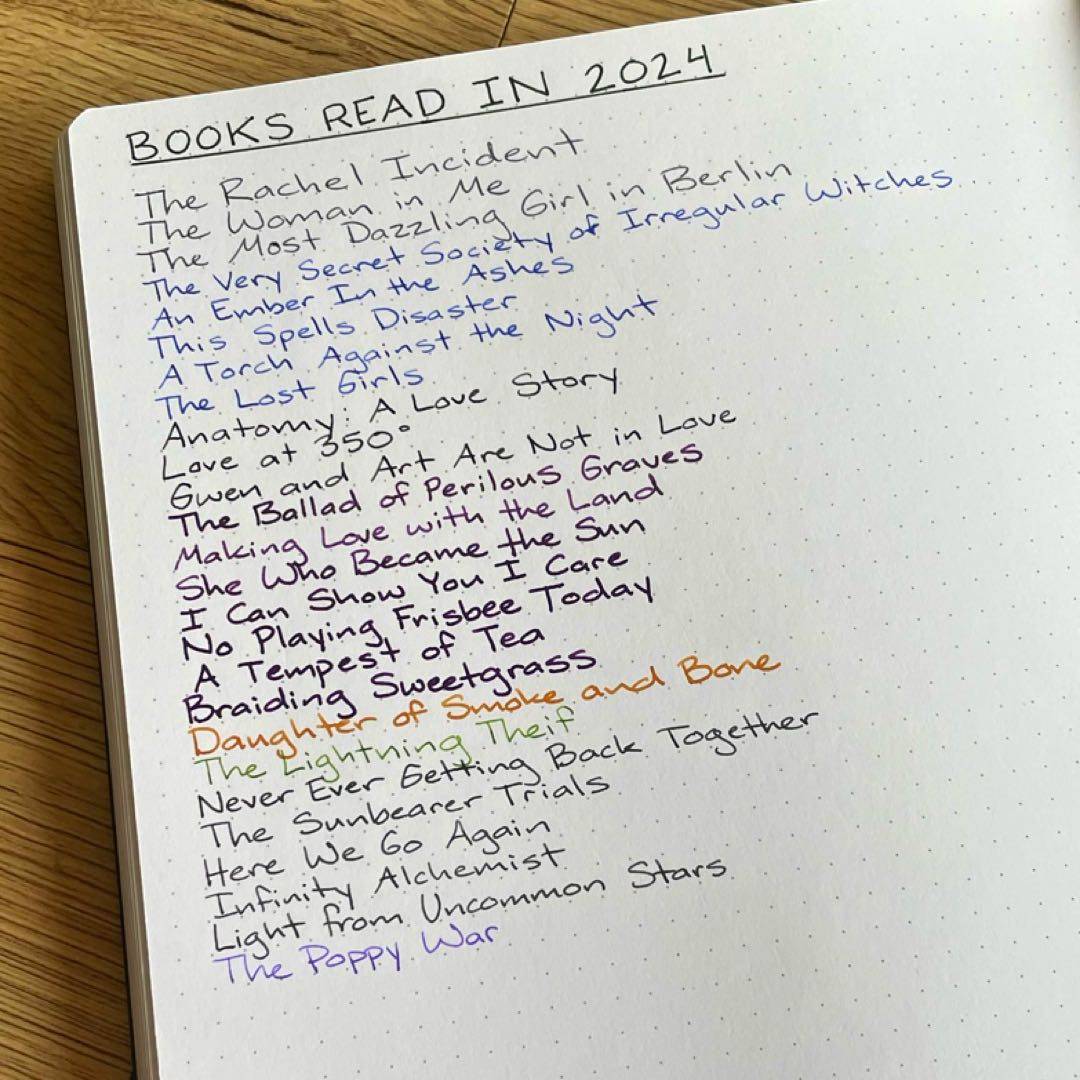 BOOKS READ IN 2024
The Rachel Incident
The Woman in Me
The Most Dazzling Girl in Berlin
The Very Secret Society of Irregular Witches
An Ember In the Ashes
This Spells Disaster
A Torch Against the Night
The Lost Girls
Anatomy: A Love Story
Love at 350°
Gwen and Art Are Not in Love
The Ballad of Perilous Graves
Making Love with the Land
She Who Became the Sun
I Can Show You I Care
No Playing Frisbee Today
A Tempest of Tea
Braiding Sweetgrass
Daughter of Smoke and Bone
The Lightning Theif
Never Ever Getting Back Together
The Sunbearer Trials
Here We Go Again
Infinity Alchemist
Light from Uncommon Stars
The Poppy War